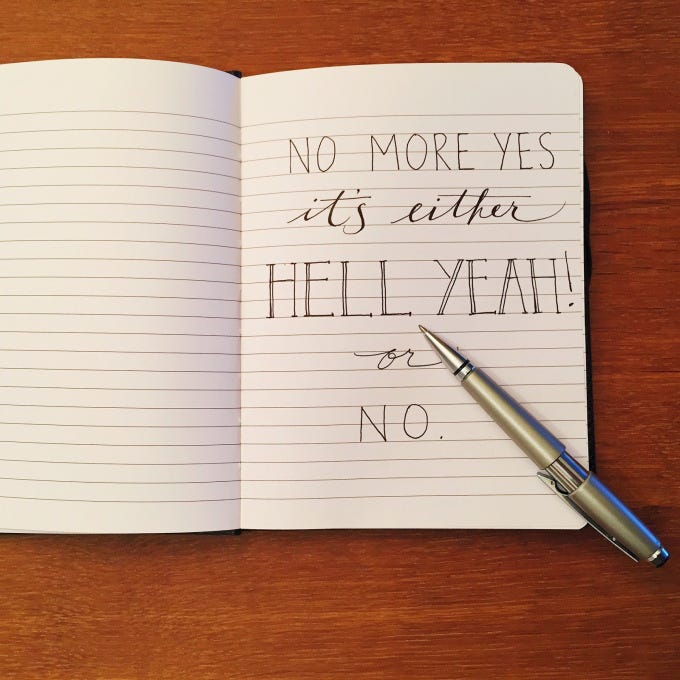 NO MORE YES
it's either
HELL YEAH!
or
NO.